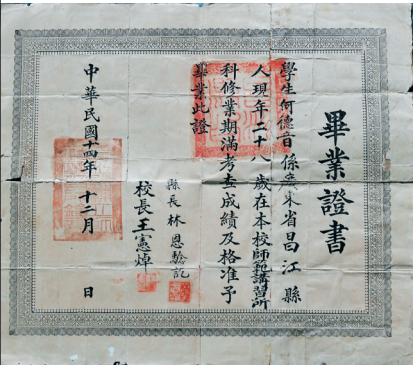 畢業證書
學生何德育係廣東省昌江縣
人現年二十八歲在本校師範講習所
科修業期滿考查成績及格准予
畢業此證
縣長林恩
校長王憲焯
中華民國十四年十二月 日